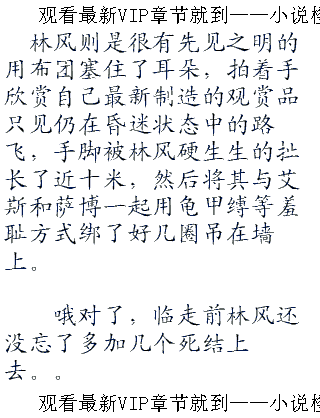 观看最新VIP章节就到——小说
林风则是很有先见之明的
用布团塞住了耳朵，拍着手
欣赏自己最新制造的观赏品
只见仍在昏迷状态中的路
飞，手脚被林风硬生生的扯
长了近十米，然后将其与艾
斯和萨博一起用龟甲缚等羞
耻方式绑了好几圈吊在墙
上。
哦对了，临走前林风还
没忘了多加几个死结上
去。。
观看最新VIP章节就到——小说